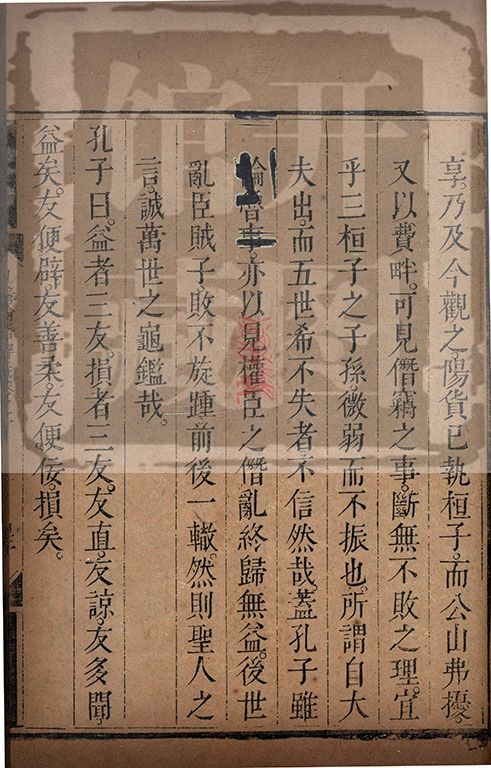 享乃及今觀之陽貨已執桓子而公山弗擾
又以費畔可見僭竊之事斷無不敗之理宜
乎三桓子之子孫微弱而不振也所謂自大
夫出而五世希不失者不信然哉蓋孔子雖
論魯事亦以見權臣之僭亂終歸無益後世
亂臣賊子敗不旋踵前後一轍然則聖人之
言誠萬世之龜鑑哉
孔子曰益者三友損者三友友直友諒友多聞
益矣友便辟友善柔友便佞損矣